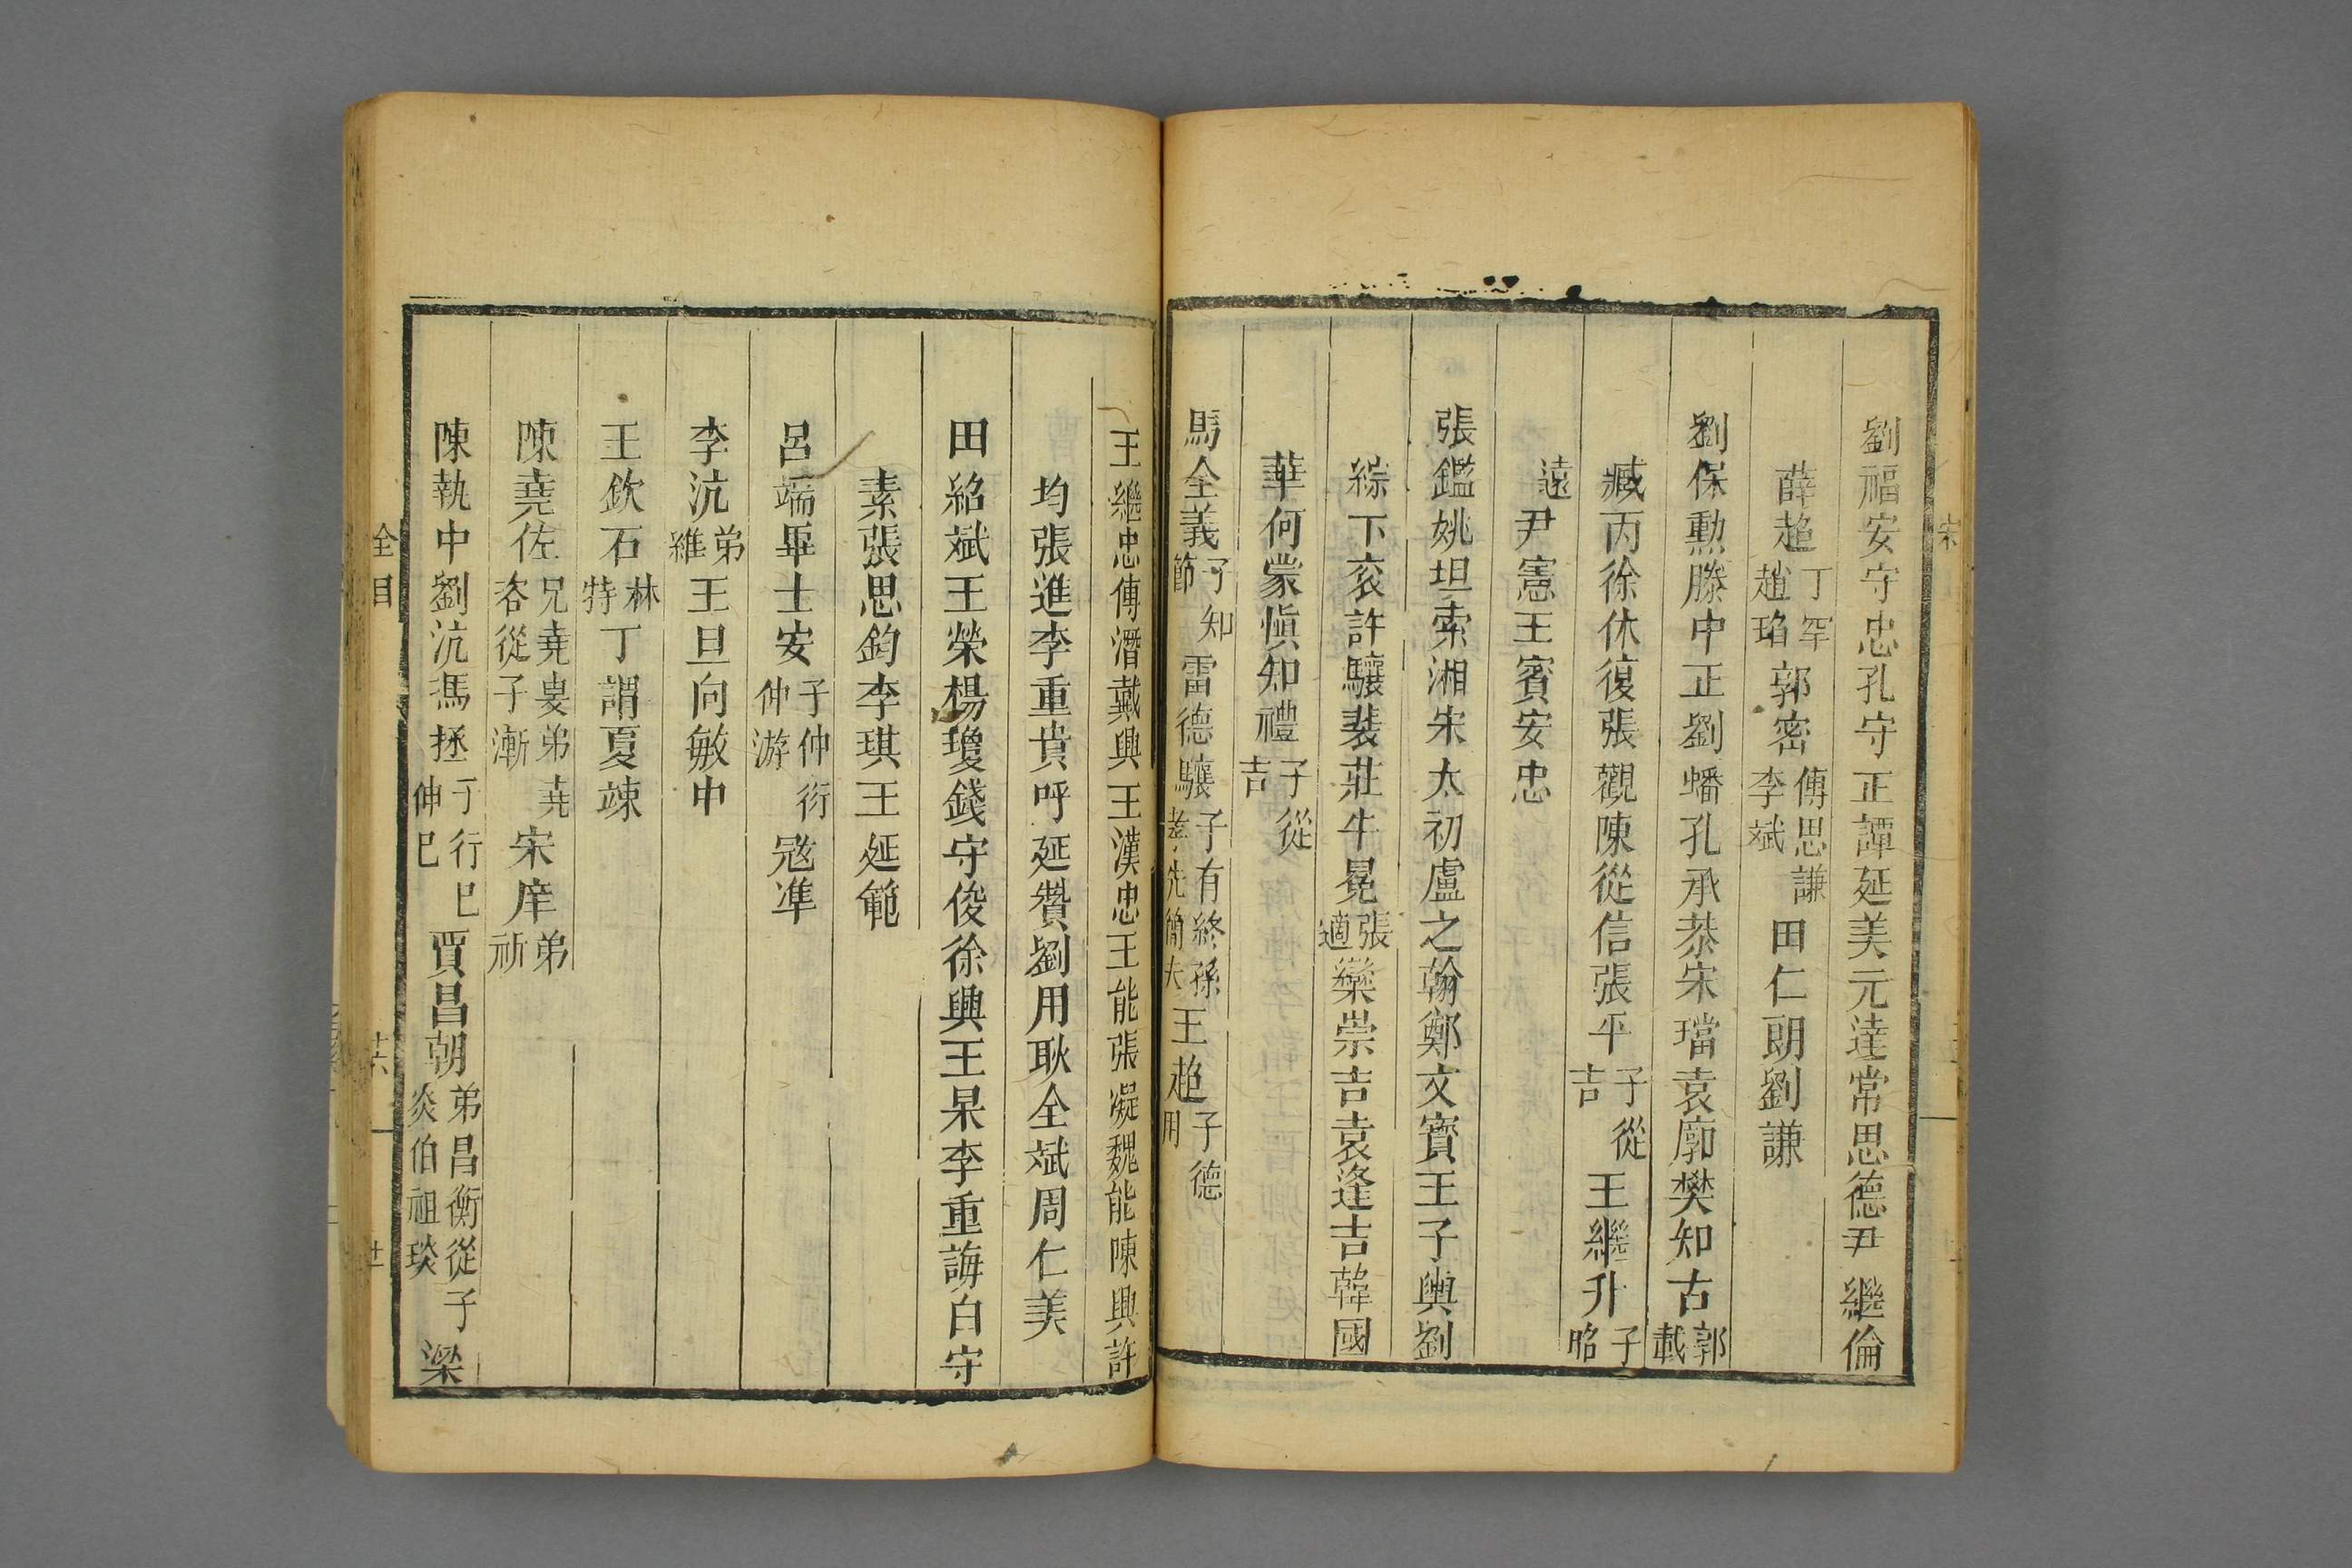 宋
劉福安守忠孔守正譚延美元達常思德尹繼倫
薛超丁罕趙珀郭密傅思謙李斌田仁朗劉謙
劉保勲滕中正劉蟠孔承恭宋璫袁廓樊知古郭載
臧丙徐休復張觀陳從信張平子從吉王繼升子昭
遠尹憲王賓安忠
張鑑姚坦索湘宋太初盧之翰鄭文寳王子輿劉
綜卞衮許驤裴莊牛冕張適欒崇吉袁逢吉韓國
華何蒙愼知禮子從吉
馬全義子知節雷德驤子有終孫孝先簡夫王超子德用
王繼忠傅潛戴興王漢忠王能張凝魏能陳興許
均張進李重貴呼延贊劉用耿全斌周仁美
田紹斌王榮楊瓊錢守俊徐興王杲李重誨白守
素張思鈞李琪王延範
呂端畢士安子仲衍仲游冦凖
李沆弟維王旦向敏中
王欽石林特丁謂夏竦
陳堯佐兄堯叟弟堯咨從子漸宋庠弟祁
陳執中劉沆馮拯子行已伸已賈昌朝弟昌衡從子炎伯祖琰梁
全目